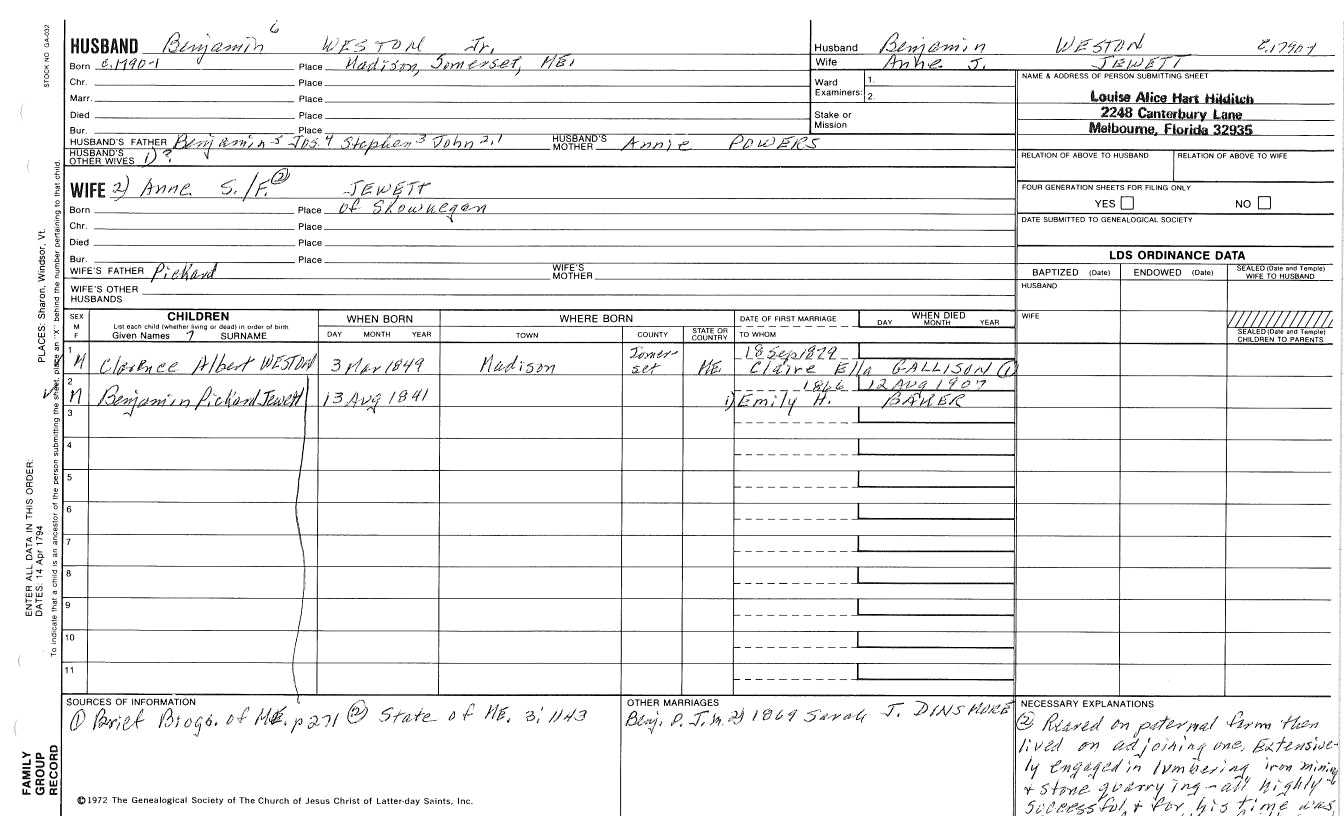 STOCK NO. GA-032
HUSBAND Benjamin 6 WESTON Jr.
Born c.1790-1 Place Madison, Somerset, ME.
Chr. Place
Marr. Place
Died Place
Bur. Place
HUSBAND'S FATHER Benjamin 5 Jos. 4 Stephen 3 John 2,1 HUSBAND'S MOTHER Annie POWERS
HUSBAND'S OTHER WIVES 1) ?
WIFE 2) Anne S./F. (2) JEWETT
Born Place of Skowhegan
Chr. Place
Died Place
Bur. Place
WIFE'S FATHER Pickard WIFE'S MOTHER
WIFE'S OTHER HUSBANDS
Husband Benjamin WESTON c.1790-1
Wife Anne J. JEWETT
Ward Examiners: 1.
2.
Stake or Mission
NAME & ADDRESS OF PERSON SUBMITTING SHEET
Louise Alice Hart Hilditch
2248 Canterbury Lane
Melbourne, Florida 32935
RELATION OF ABOVE TO HUSBAND RELATION OF ABOVE TO WIFE
FOUR GENERATION SHEETS FOR FILING ONLY
YES NO
DATE SUBMITTED TO GENEALOGICAL SOCIETY
LDS ORDINANCE DATA
BAPTIZED (Date) ENDOWED (Date) SEALED (Date and Temple) WIFE TO HUSBAND
HUSBAND
WIFE
SEALED (Date and Temple) CHILDREN TO PARENTS
SEX M F
CHILDREN
List each child (whether living or dead) in order of birth
Given Names 7 SURNAME
WHEN BORN
DAY MONTH YEAR
WHERE BORN
TOWN COUNTY STATE OR COUNTRY
DATE OF FIRST MARRIAGE
TO WHOM
WHEN DIED
DAY MONTH YEAR
1 M Clarence Albert WESTON 3 Mar 1849 Madison Somer-set ME 18 Sep 1879
Claire Ella GALLISON (1)
2 M Benjamin Pickard Jewett 13 Aug 1841 1866 12 Aug 1907
1) Emily H. BAKER
3
4
5
6
7
8
9
10
11
SOURCES OF INFORMATION
(1) Brief Biogs. of ME. p 271 (2) State of ME. 3:1143
OTHER MARRIAGES
Benj. P. J. m. 2) 1869 Sarah J. DINSMORE
NECESSARY EXPLANATIONS
(2) Reared on paternal farm then
lived on adjoining one. Extensive-
ly engaged in lumbering iron mining
+ stone quarrying - all highly
successful + for his time was
©1972 The Genealogical Society of The Church of Jesus Christ of Latter-day Saints, Inc.
FAMILY GROUP RECORD
ENTER ALL DATA IN THIS ORDER:
DATES: 14 Apr 1794
PLACES: Sharon, Windsor, Vt.
To indicate that a child is an ancestor of the person submitting the sheet, place an "X" behind the number pertaining to that child.